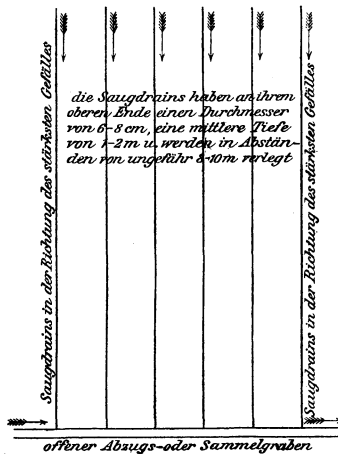 Saugdrains in der Richtung des stärksten Gefälles
die Saugdrains haben an ihrem
oberen Ende einen Durchmesser
von 6-8 cm, eine mittlere Tiefe
von 1-2 m u. werden in Abstän-
den von ungefähr 8-10 m verlegt
Saugdrains in der Richtung des stärksten Gefälles
offener Abzugs- oder Sammelgraben